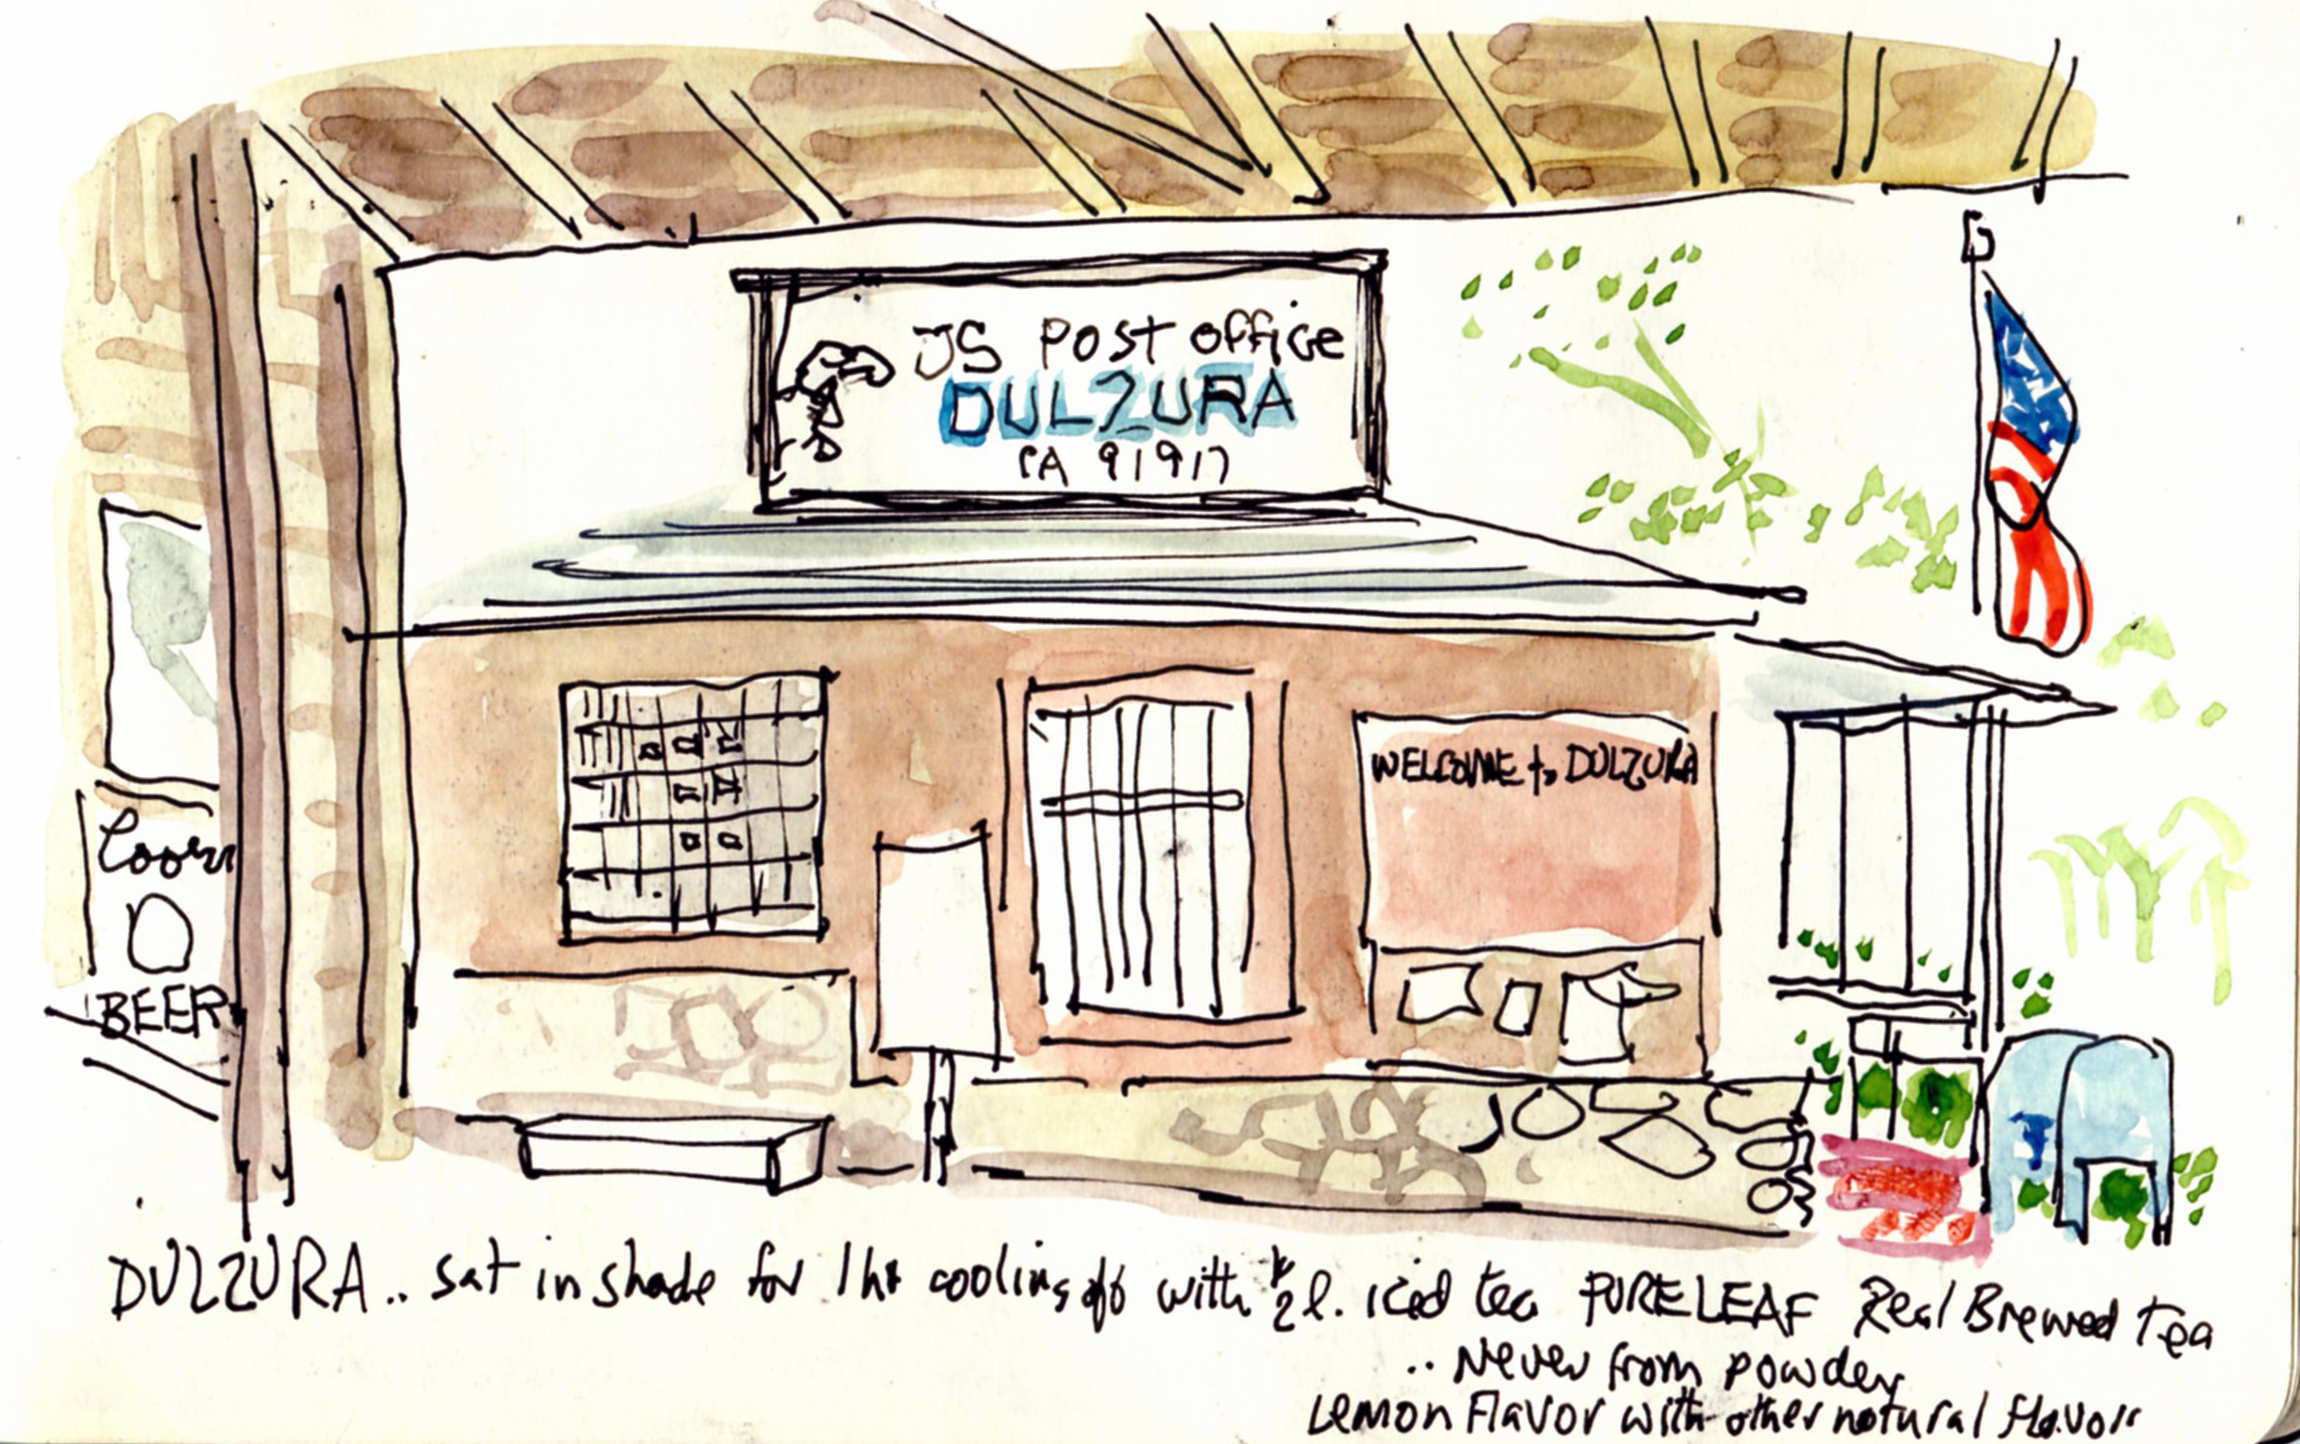 US Post Office
DULZURA
CA 91917
WELCOME to DULZURA
Coors
BEER
DULZURA.. sat in shade for 1 hr cooling off with ½ l. iced tea PURELEAF Real Brewed Tea
.. Never from powder
Lemon Flavor with other natural flavors